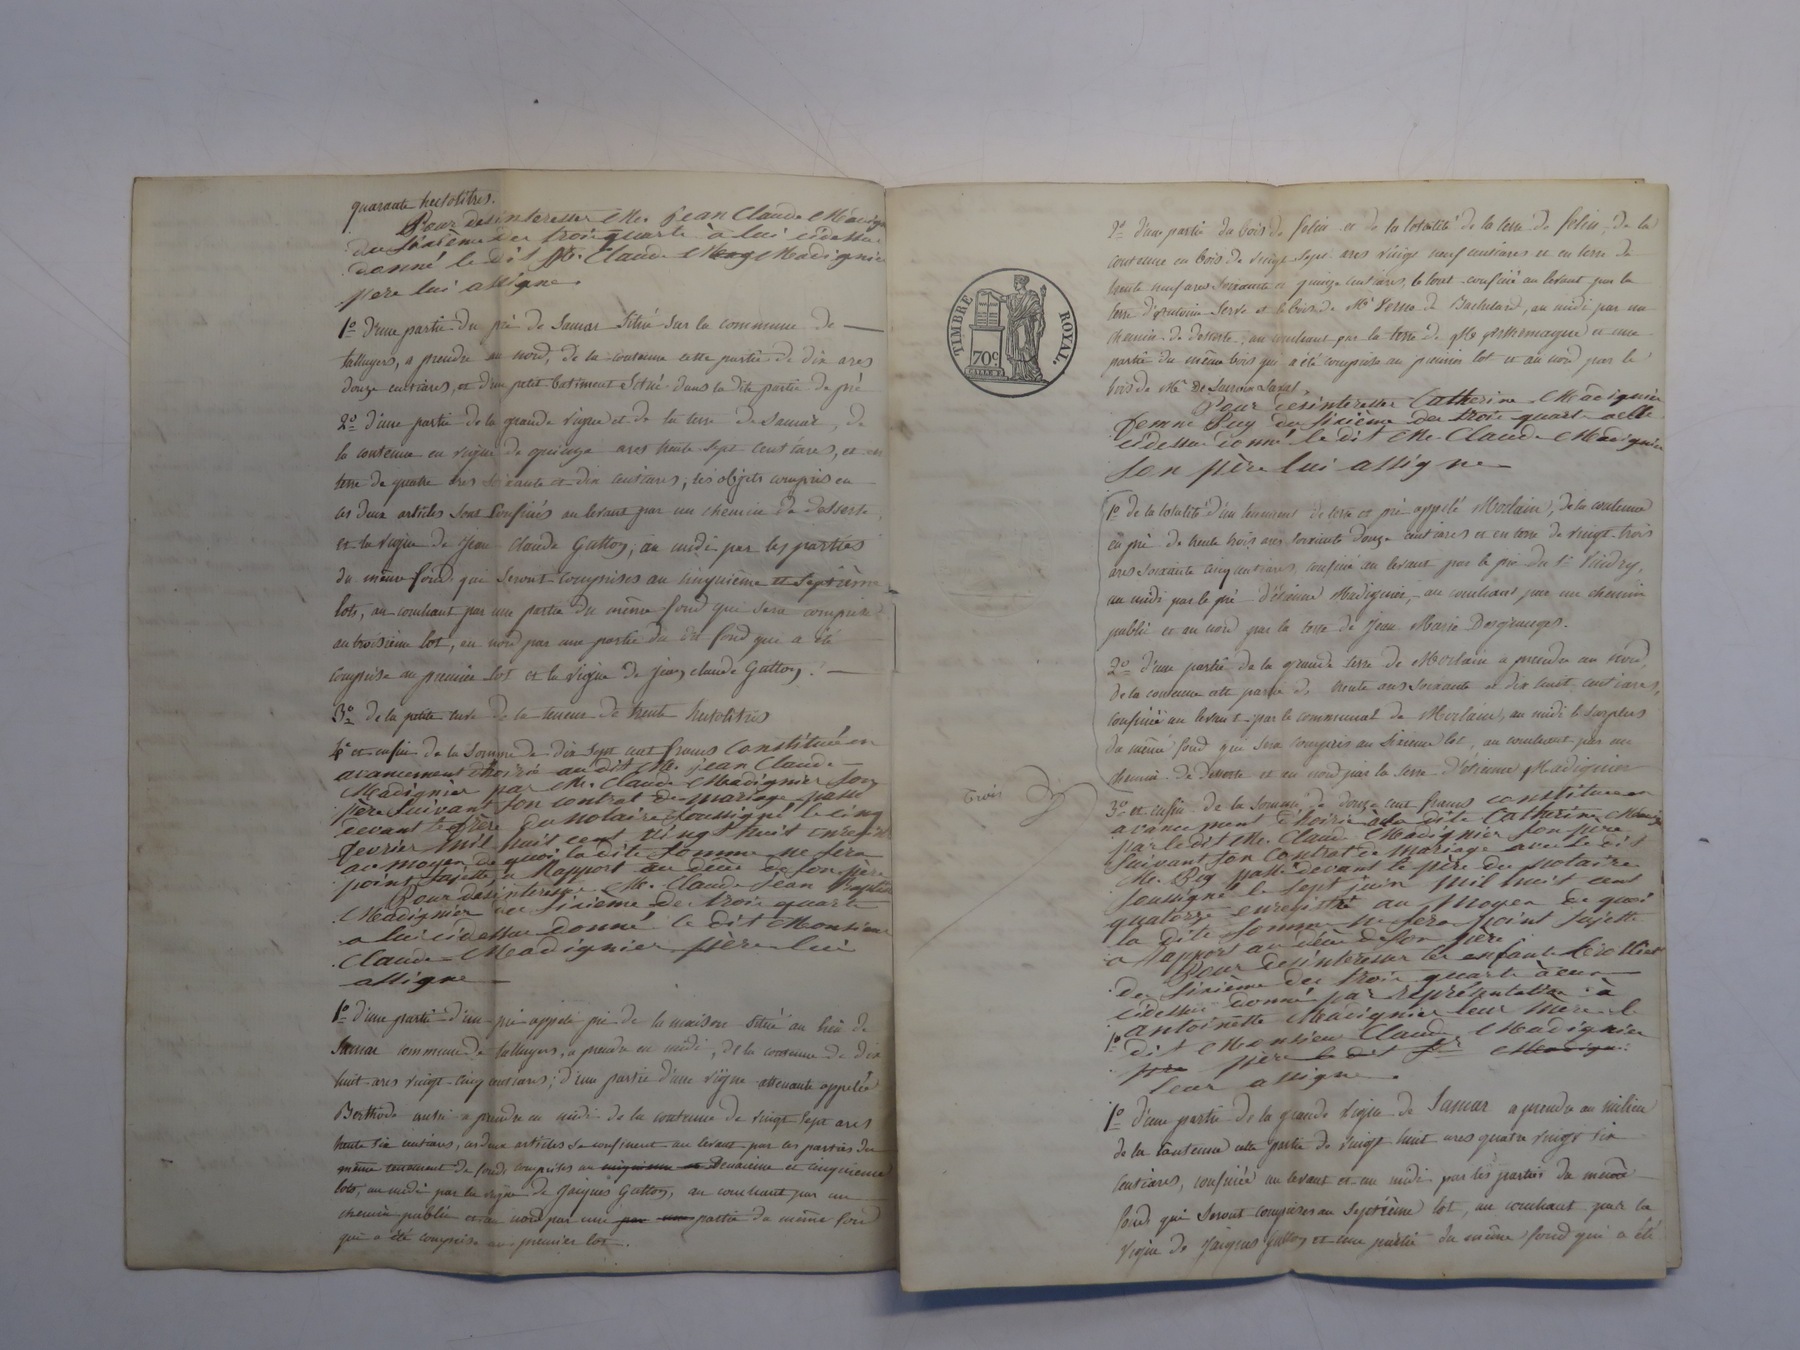 quarante hectolitres.
Pour desinteresser Mr. jean Claude Madignier
du sixième des trois quarts à lui cidessus
donné le dit Mr. Claude Madignier
père lui assigne
1º d'une partie du pré de Samar situé sur la commune de
talluyers, a prendre au nord, de la contenue cette partie de dix ares
douze centiares, et d'un petit batiment situé dans la dite partie de pré
2º d'une partie de la grande vigne et de la terre de Samar, de
la contenue en vigne de quinze ares trente sept centiares, et en
terre de quatre ares soixante et dix centiares; les objets compris en
ces deux articles sont confinés au levant par un chemin de desserte
et la vigne de Jean Claude Gutton; au midi par les parties
du même fond qui seront comprises au cinquième et septième
lots, au couchant par une partie du même fond qui sera comprise
au troisième lot, au nord par une partie du dit fond qui a été
comprise au premier lot et la vigne de jean claude Gutton.
3º de la petite cuve de la teneur de trente hectolitres
4º et enfin de la somme de dix sept cent francs constituée en
avancement d'hoirie au dit Mr. jean Claude
Madignier par Mr. Claude Madignier son
père suivant son contrat de mariage passé
devant le père du notaire soussigné le cinq
fevrier mil huit cent vingt huit enregistré
au moyen de quoi la dite somme ne sera
point sujette a Rapport au décès de son père
Pour désinteresser Mr. Claude Jean Baptiste
Madignier du sixieme des trois quarts
a lui cidessus donné le dit Monsieur
Claude Madignier père lui
assigne
1º d'une partie d'un pré appelé pré de la maison situé au lieu de
Samar commune de talluyers, a prendre en midi, de la contenue de dix
huit ares vingt cinq centiares; d'une partie d'une vigne attenante appelée
Berthode aussi a prendre en midi de la contenue de vingt sept ares
trente six centiares, ces deux articles se confinent au levant par les parties du
même tenement de fonds comprises au cinquieme et Deuxieme et cinquieme
lots, au midi par la vigne de Jacques Gutton, au couchant par un
chemin public et au nord par une par une partie du même fond
qui a été comprise au premier lot.
TIMBRE ROYAL.
70c.
2º d'une partie du bois de felin et de la totalité de la terre de felin, de la
contenue en bois de vingt sept ares vingt neuf centiares et en terre de
trente neuf ares soixante et quinze centiares, le tout confiné au levant par la
terre d'antoine Serve et le bois de Mr Verne de Bachelard, au midi par un
chemin de desserte, au couchant par la terre de Mr et une
partie du même bois qui a été comprise au premier lot et au nord par le
bois de Mr De
Pour désinteresser Catherine Madignier
femme Puy du sixième des trois quart a elle
cidessus donné le dit Mr. Claude Madignier
son père lui assigne
1º de la totalité d'un tenement de terre et pré appelé Morlain, de la contenue
en pré de trente trois ares soixante douze centiares et en terre de vingt trois
ares soixante cinq centiares, confiné au levant par le pré du Sr Vindry,
au midi par le pré d'étienne Madignier, au couchant par un chemin
public et au nord par la terre de Jean Marie Desgranges.
2º d'une partie de la grande terre de Morlain a prendre au nord,
de la contenue cette partie de trente ares soixante et dix huit centiares,
confinée au levant par le communal de Morlain, au midi le surplus
du même fond qui sera compris au sixieme lot, au couchant par un
chemin de desserte et au nord par la terre d'étienne Madignier
Trois
3º et enfin de la somme de douze cent francs constituée en
avancement d'hoirie a la dite Catherine Madignier
par le dit Mr. Claude Madignier son père
suivant son contrat de mariage avec le dit
Mr. Puy passé devant le père du notaire
soussigné le sept juin mil huit cent
quatorze enregistré au moyen de quoi
la dite somme ne sera point sujette
a rapport au décès de son père
Pour desinteresser les enfants
du sixieme des trois quarts à eux
cidessus donné par représentation à
antoinette Madignier leur mère le
1º dit Monsieur Claude Madignier
père le dit Sr Madignier
leur assigne
1º d'une partie de la grande vigne de Samar a prendre au milieu
de la contenue cette partie de vingt huit ares quatre vingt six
centiares, confinée au levant et au midi par les parties du même
fond qui seront comprises au septième lot, au couchant par la
vigne de Jacques Gutton et une partie du même fond qui a été